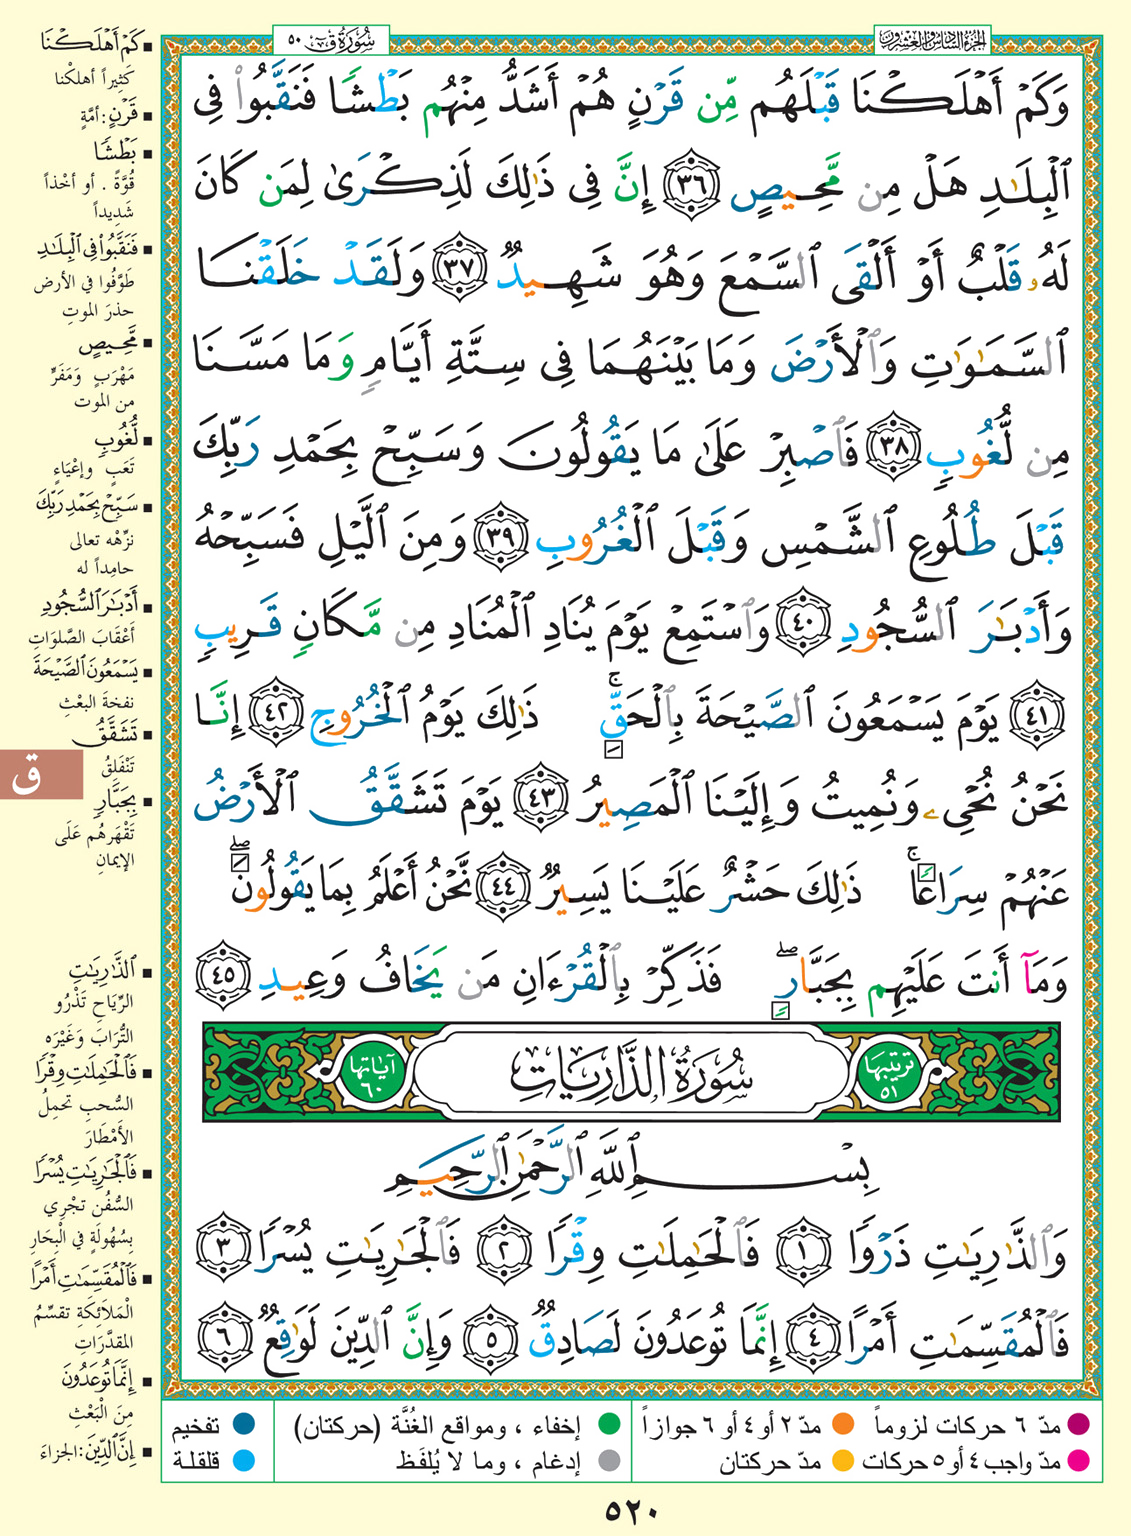 الجزء السادس والعشرون
سُورَةُ قٓ ٥٠
وَكَمۡ أَهۡلَكۡنَا قَبۡلَهُم مِّن قَرۡنٍ هُمۡ أَشَدُّ مِنۡهُم بَطۡشًا فَنَقَّبُواْ فِى
ٱلۡبِلَـٰدِ هَلۡ مِن مَّحِيصٍ ٣٦ إِنَّ فِى ذَٰلِكَ لَذِكۡرَىٰ لِمَن كَانَ
لَهُۥ قَلۡبٌ أَوۡ أَلۡقَى ٱلسَّمۡعَ وَهُوَ شَهِيدٌ ٣٧ وَلَقَدۡ خَلَقۡنَا
ٱلسَّمَـٰوَٰتِ وَٱلۡأَرۡضَ وَمَا بَيۡنَهُمَا فِى سِتَّةِ أَيَّامٍ وَمَا مَسَّنَا
مِن لُّغُوبٍ ٣٨ فَٱصۡبِرۡ عَلَىٰ مَا يَقُولُونَ وَسَبِّحۡ بِحَمۡدِ رَبِّكَ
قَبۡلَ طُلُوعِ ٱلشَّمۡسِ وَقَبۡلَ ٱلۡغُرُوبِ ٣٩ وَمِنَ ٱلَّيۡلِ فَسَبِّحۡهُ
وَأَدۡبَـٰرَ ٱلسُّجُودِ ٤٠ وَٱسۡتَمِعۡ يَوۡمَ يُنَادِ ٱلۡمُنَادِ مِن مَّكَانٍ قَرِيبٍ
٤١ يَوۡمَ يَسۡمَعُونَ ٱلصَّيۡحَةَ بِٱلۡحَقِّۚ ذَٰلِكَ يَوۡمُ ٱلۡخُرُوجِ ٤٢ إِنَّا
نَحۡنُ نُحۡىِۦ وَنُمِيتُ وَإِلَيۡنَا ٱلۡمَصِيرُ ٤٣ يَوۡمَ تَشَقَّقُ ٱلۡأَرۡضُ
عَنۡهُمۡ سِرَاعًاۚ ذَٰلِكَ حَشۡرٌ عَلَيۡنَا يَسِيرٌ ٤٤ نَّحۡنُ أَعۡلَمُ بِمَا يَقُولُونَۖ
وَمَآ أَنتَ عَلَيۡهِم بِجَبَّارٍۖ فَذَكِّرۡ بِٱلۡقُرۡءَانِ مَن يَخَافُ وَعِيدِ ٤٥
ترتيبها ٥١ سُورَةُ الذَّارِيَاتِ آياتها ٦٠
بِسۡمِ ٱللَّهِ ٱلرَّحۡمَٰنِ ٱلرَّحِيمِ
وَٱلذَّٰرِيَـٰتِ ذَرۡوًا ١ فَٱلۡحَـٰمِلَـٰتِ وِقۡرًا ٢ فَٱلۡجَـٰرِيَـٰتِ يُسۡرًا ٣
فَٱلۡمُقَسِّمَـٰتِ أَمۡرًا ٤ إِنَّمَا تُوعَدُونَ لَصَادِقٌ ٥ وَإِنَّ ٱلدِّينَ لَوَٰقِعٌ ٦
كَمۡ أَهۡلَكۡنَا
كَثِيراً أهلكْنا
قَرۡنٍ: أمّةٍ
بَطۡشًا
قُوَّةً . أو أخْذاً
شَدِيداً
فَنَقَّبُواْ فِى ٱلۡبِلَـٰدِ
طَوَّفُوا في الأرض
حذرَ الموتِ
مَّحِيصٍ
مَهْرَبٍ وَمَفَرٍّ
من الموت
لُّغُوبٍ
تَعَبٍ وإعْيَاءٍ
سَبِّحۡ بِحَمۡدِ رَبِّكَ
نزّهْه تعالى
حامِداً له
أَدۡبَـٰرَ ٱلسُّجُودِ
أعْقَابَ الصَّلوَاتِ
يَسۡمَعُونَ ٱلصَّيۡحَةَ
نفخةَ البعْثِ
تَشَقَّقُ
تَنْفَلِقُ
بِجَبَّارٍ
تَقْهَرهُم عَلَى
الإيمانِ
ق
ٱلذَّٰرِيَـٰتِ
الرّيَاحِ تَذْرُو
التُّرَابَ وَغَيْرَه
فَٱلۡحَـٰمِلَـٰتِ وِقۡرًا
السُّحبِ تحمِلُ
الأمْطَارَ
فَٱلۡجَـٰرِيَـٰتِ يُسۡرًا
السُّفُن تجْرِي
بِسُهُولَةٍ في الْبِحَارِ
فَٱلۡمُقَسِّمَـٰتِ أَمۡرًا
الْمَلائِكَةِ تقسِّمُ
المقدَّرَاتِ
إِنَّمَا تُوعَدُونَ
مِنَ الْبَعْثِ
إِنَّ ٱلدِّينَ: الجزاءَ
مدّ ٦ حركات لزوماً
مدّ ٢ أو ٤ أو ٦ جوازاً
إخفاء ، ومواقع الغُنَّة (حركتان)
تفخيم
مدّ واجب ٤ أو ٥ حركات
مدّ حركتان
إدغام ، وما لا يُلفَظ
قلقلة
٥٢٠